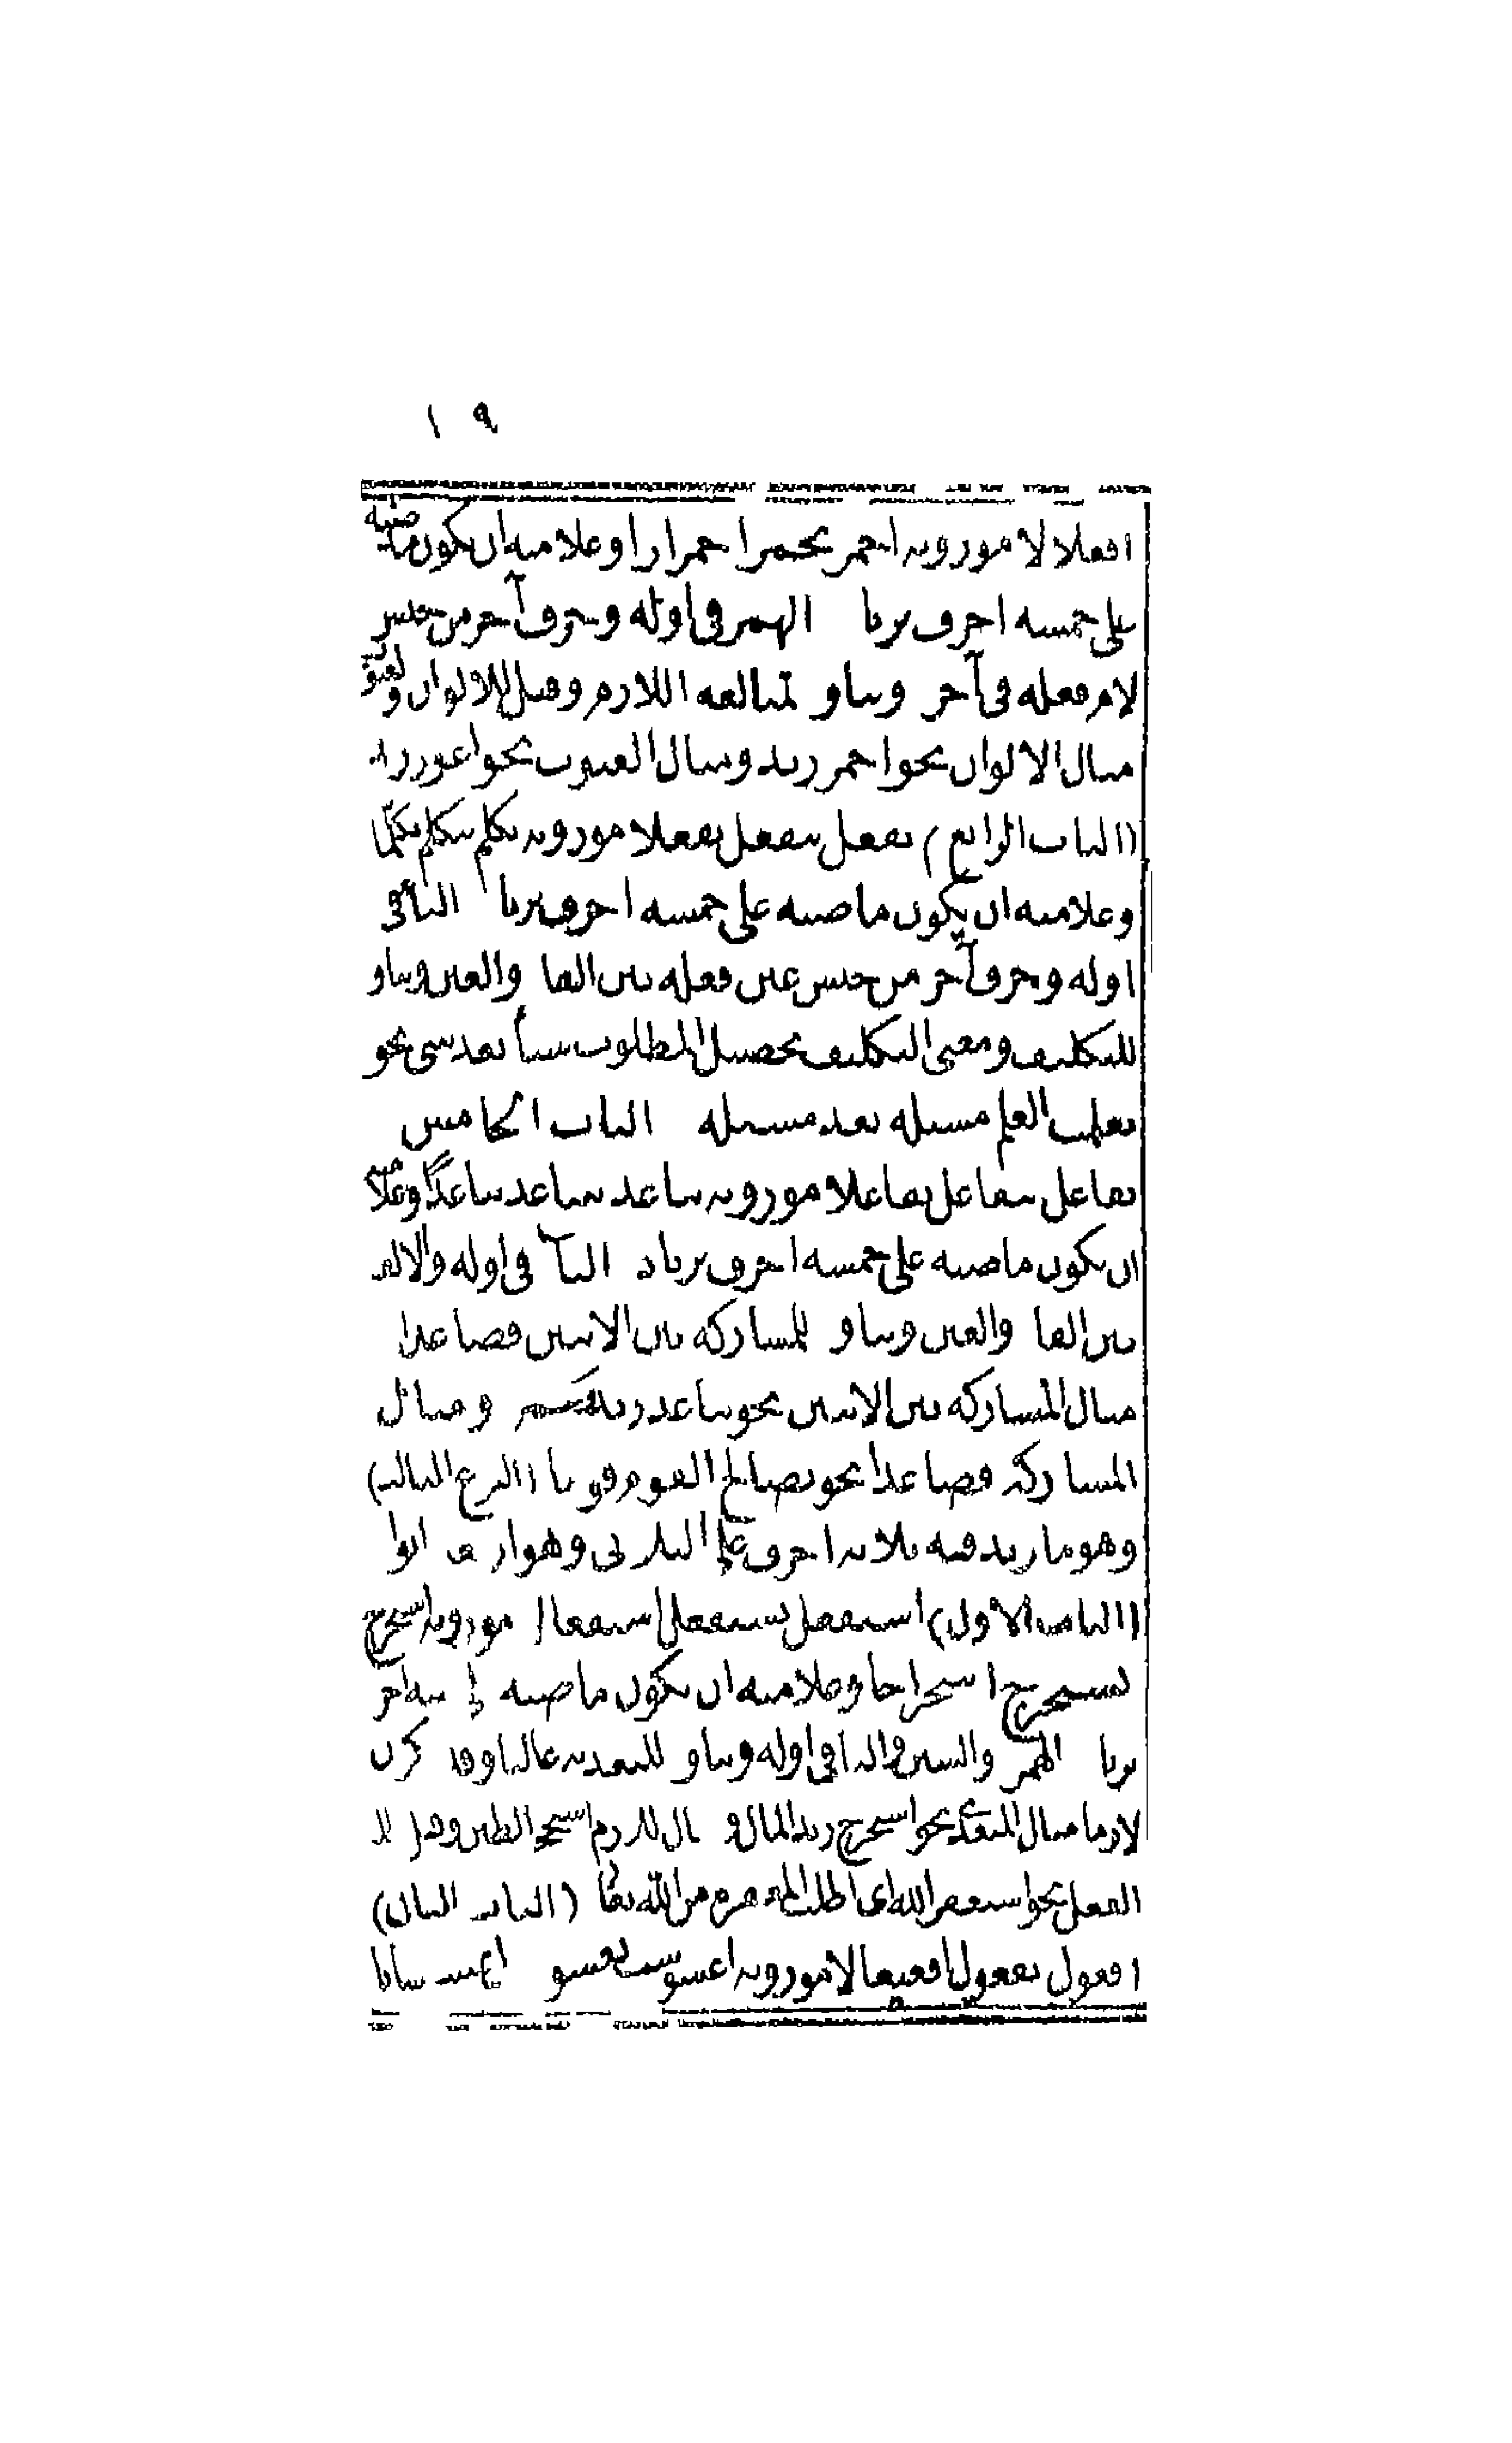 ١٩
افعلالا موزونه احمر يحمر احمرارا وعلامته ان يكون ماضيه
على خمسة احرف بزيادة الهمزة فى اوله وحرف آخر من جنس
لام فعله فى آخره وبناؤه لمبالغة اللازم وقيل للالوان والعيوب
مثال الالوان نحو احمر زيد ومثال العيوب نحو اعور زيد
(الباب الرابع) تفعل يتفعل تفعلا موزونه تكلم يتكلم تكلما
وعلامته ان يكون ماضيه على خمسة احرف بزيادة التاء فى
اوله وحرف آخر من جنس عين فعله بين الفاء والعين وبناؤه
للتكلف ومعنى التكلف تحصيل المطلوب شيأ بعد شئ نحو
تعلمت العلم مسئلة بعد مسئلة الباب الخامس
تفاعل يتفاعل تفاعلا موزونه تباعد يتباعد تباعدا وعلامته
ان يكون ماضيه على خمسة احرف بزيادة التاء فى اوله والالف
بين الفاء والعين وبناؤه للمشاركة بين الاثنين فصاعدا
مثال المشاركة بين الاثنين نحو تباعد زيد عن عمر ومثال
المشاركة فصاعدا نحو تصالح القوم (النوع الثالث)
وهو ما زيد فيه ثلاثة احرف على الثلاثى وهو اربعة ابواب
(الباب الاول) استفعل يستفعل استفعالا موزونه استخرج
يستخرج استخراجا وعلامته ان يكون ماضيه على ستة احرف
بزيادة الهمزة والسين والتاء فى اوله وبناؤه للتعدية غالبا وقد يكون
لازما مثال المتعدى نحو استخرج زيد المال ومثال اللازم استحجر الطين وقيل لطلب
الفعل نحو استغفر الله اى اطلب المغفرة من الله تعالى (الباب الثانى)
افعوعل يفعوعل افعيعالا موزونه اعشوشب يعشوشب اعشيشابا